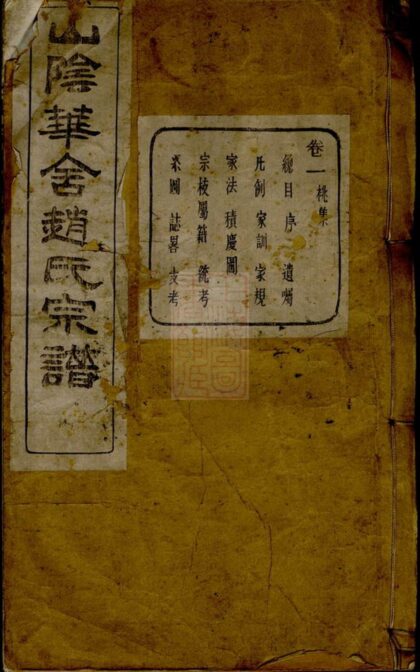 山陰華舍趙氏宗譜
卷一
總目 序 遺
凡例 家訓 家規
家法 積慶圖
宗枝屬籍 統考
系圖 誌畧 支考